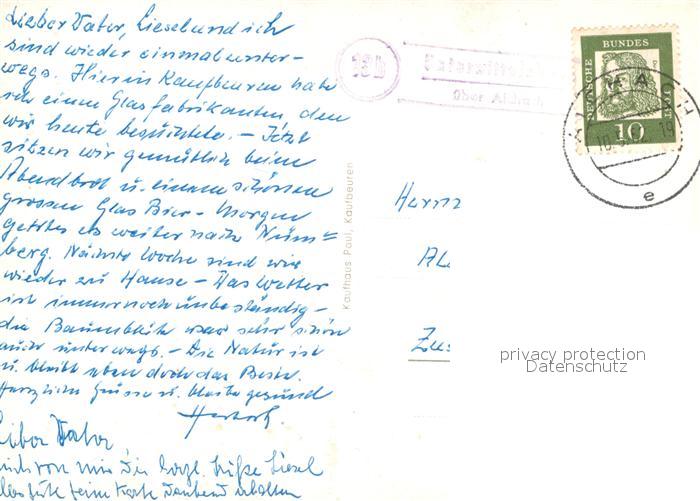 Lieber Vater, Liesel und ich
sind wieder einmal unter-
wegs. Hier in Kaufbeuren habe
ich einen Glasfabrikanten, den
wir heute besuchten. – Jetzt
sitzen wir gemütlich beim
Abendbrot u. einem schönen
grossen Glas Bier – Morgen
geht es weiter nach Nürn=
berg. Nächste Woche sind wir
wieder zu Hause – Das Wetter
ist immer noch unbeständig –
die Baumblüte war sehr schön
auch unterwegs. – Die Natur ist
u. bleibt eben doch das Beste.
Herzliche Grüsse u. bleibe gesund
Herbert.
Lieber Vater
auch von mir die herzl. Grüße Liesel
Karte dankend erhalten
Kaufhaus Paul, Kaufbeuren
13b
über Aichach
DEUTSCHE
BUNDES
POST
10
e
Herrn
privacy protection
Datenschutz